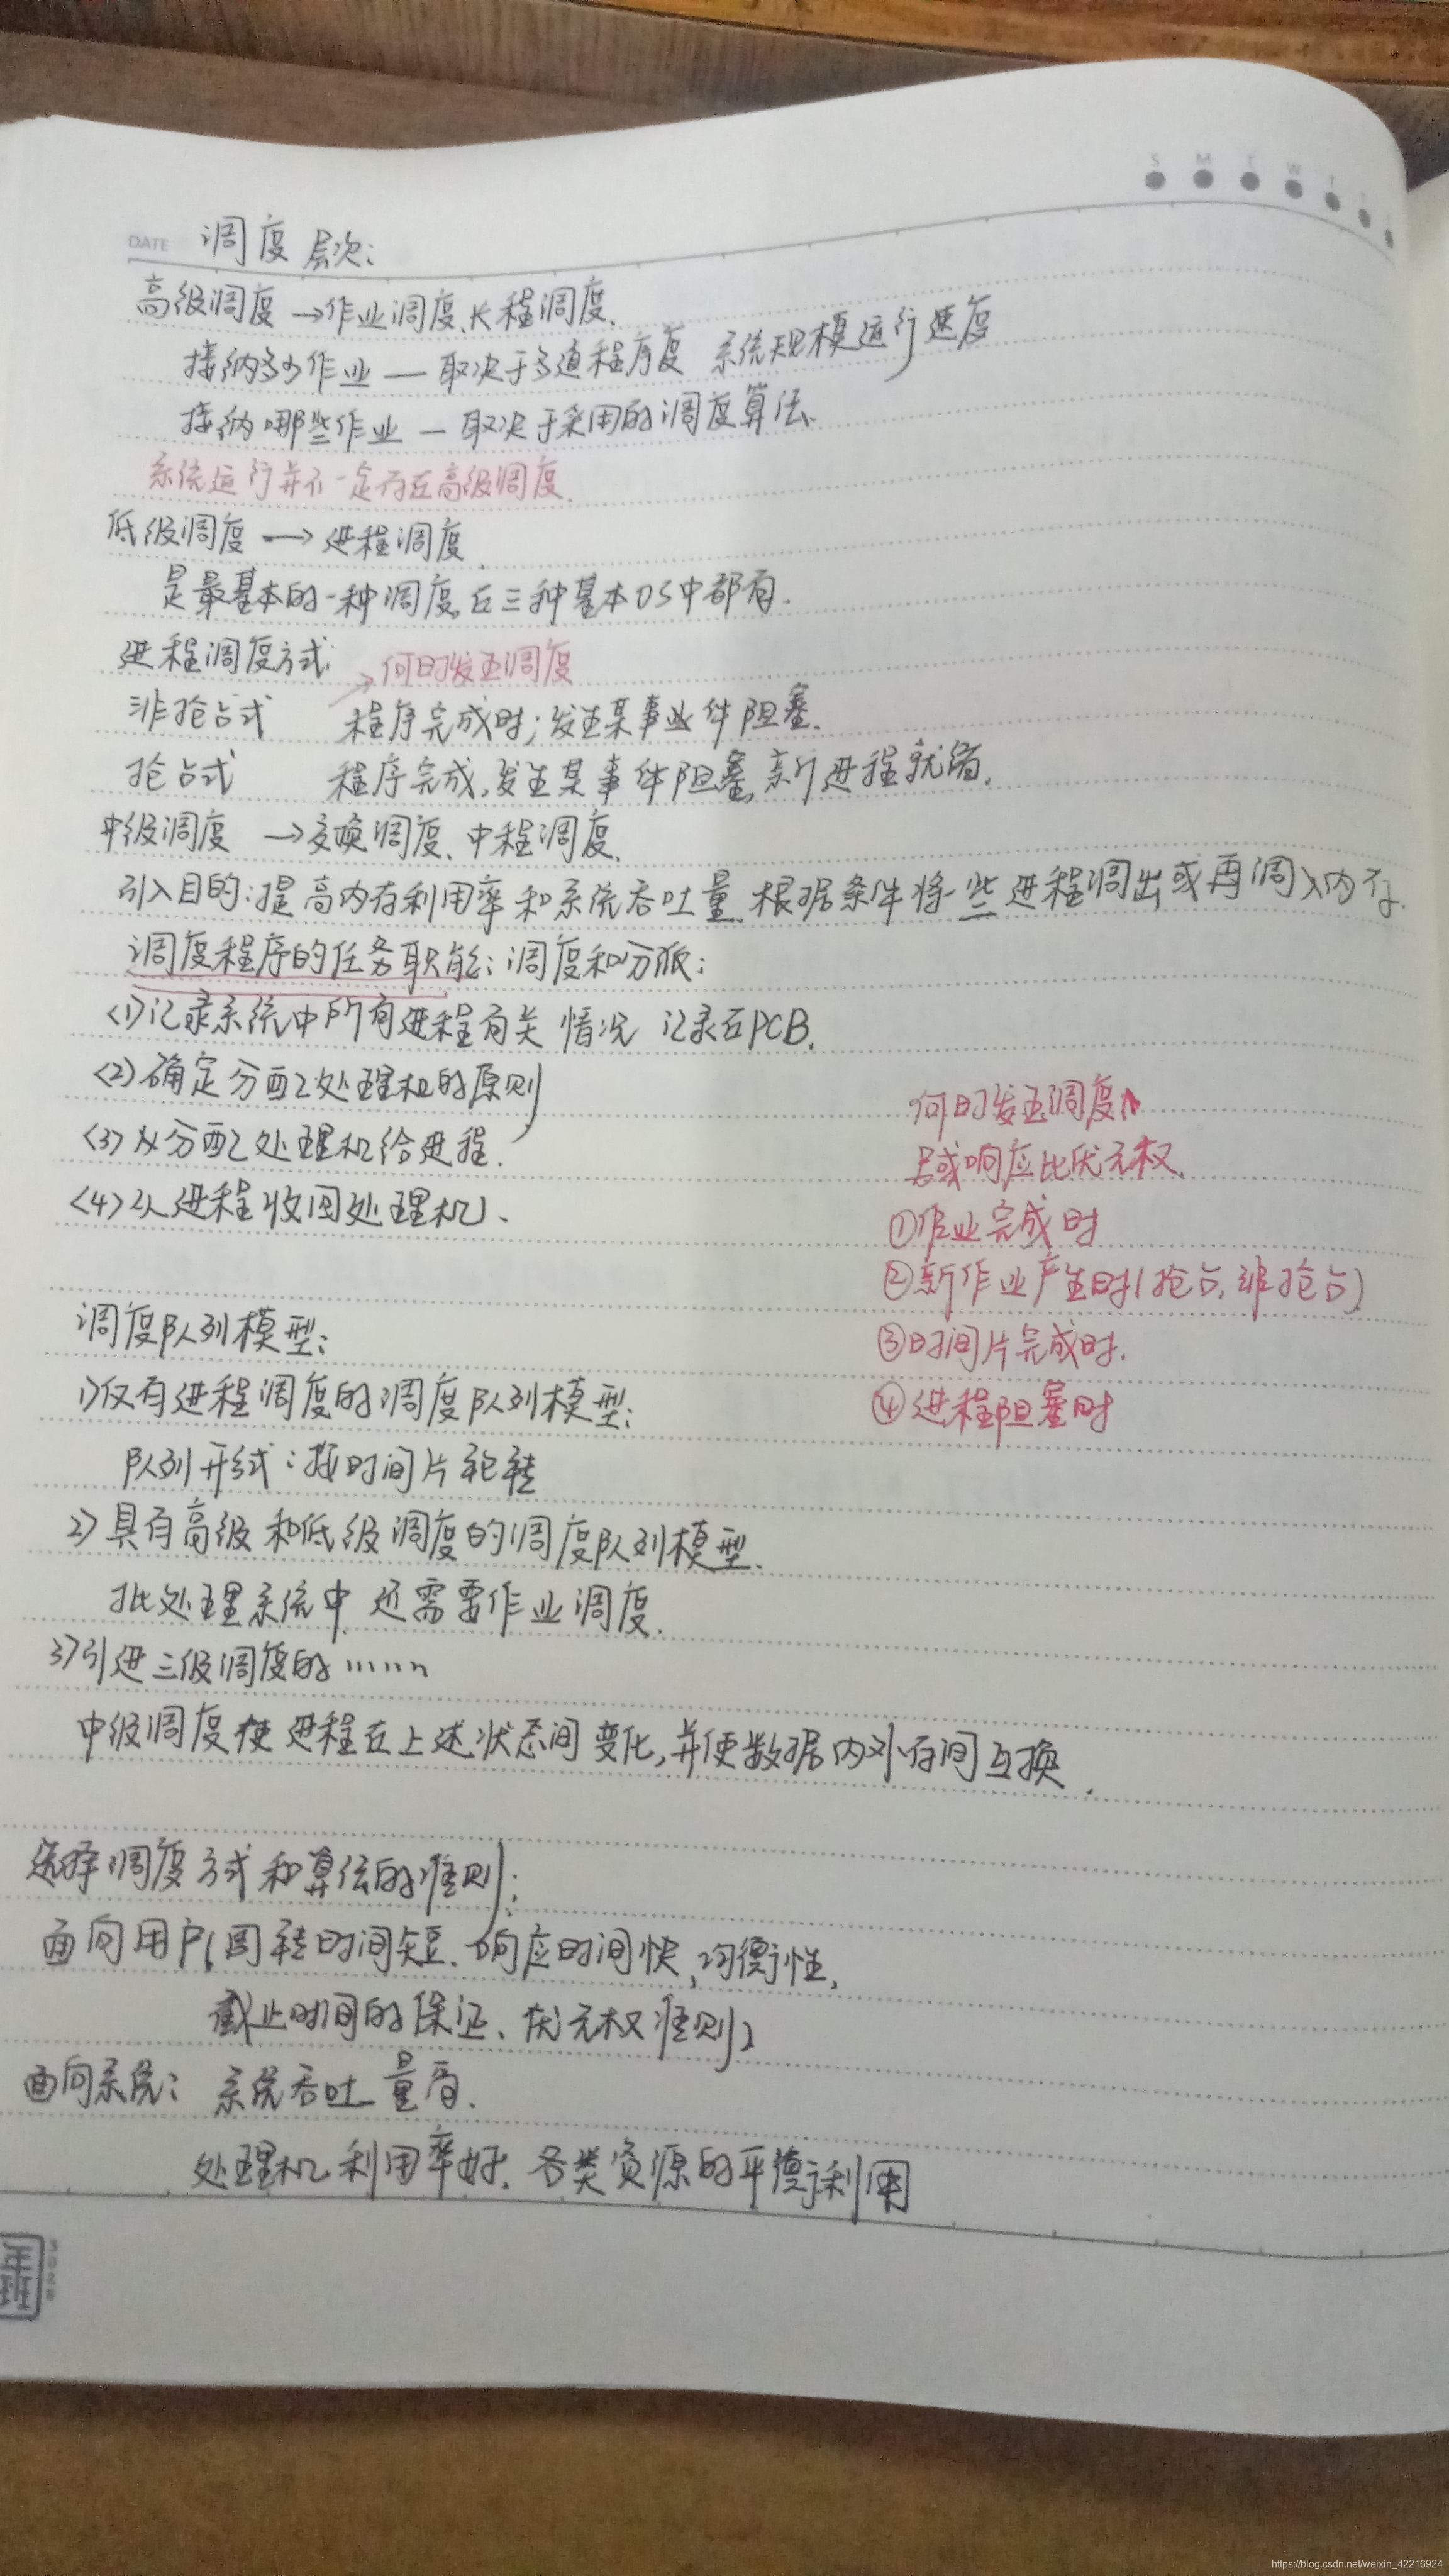 S M T W T F
DATE 调度层次:
高级调度 →作业调度、长程调度.
接纳多少作业 — 取决于多道程序度 系统规模运行速度
接纳哪些作业 — 取决于采用的调度算法.
系统运行并不一定存在高级调度.
低级调度 → 进程调度.
是最基本的一种调度,在三种基本OS中都有.
进程调度方式:
→何时发生调度
非抢占式 程序完成时;发生某事件阻塞.
抢占式 程序完成,发生某事件阻塞,新进程就绪.
中级调度 →交换调度、中程调度.
引入目的:提高内存利用率和系统吞吐量.根据条件将一些进程调出或再调入内存.
调度程序的任务职能:调度和分派:
<1>记录系统中所有进程有关情况 记录在PCB.
<2>确定分配处理机的原则
<3>分配处理机给进程.
<4>从进程收回处理机.
何时发生调度
响应比优先权.
①作业完成时
②新作业产生时(抢占,非抢占)
③时间片完成时.
④进程阻塞时
调度队列模型:
1)仅有进程调度的调度队列模型:
队列形式:按时间片轮转
2)具有高级和低级调度的调度队列模型.
批处理系统中,还需要作业调度.
3)引进三级调度的……
中级调度使进程在上述状态间变化,并使数据内外存间互换.
选择调度方式和算法的准则:
面向用户(周转时间短、响应时间快,均衡性,
截止时间的保证、优先权准则)
面向系统: 系统吞吐量高.
处理机利用率好.各类资源的平衡利用
https://blog.csdn.net/weixin_42216924